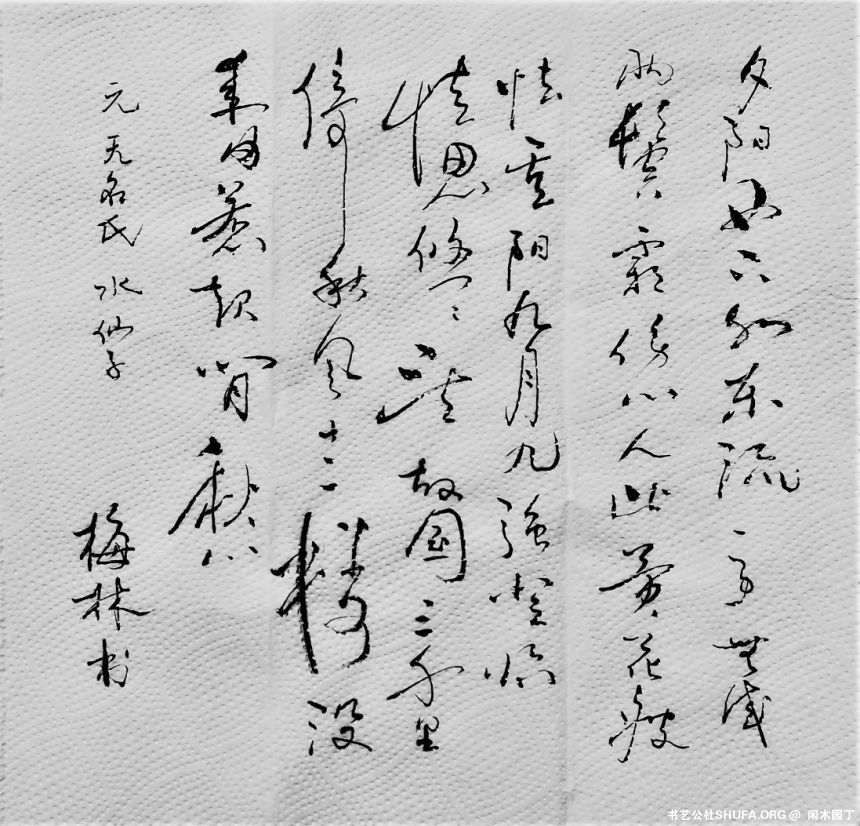 夕阳西下水东流一事無成
两鬓霜伤心人比黄花瘦
怯重阳九月九强登临
情思悠悠望故国三千里
倚秋风十二楼没
来由惹起閒愁
元 无名氏 水仙子
梅林书
书艺公社SHUFA.ORG @ 闲木园丁